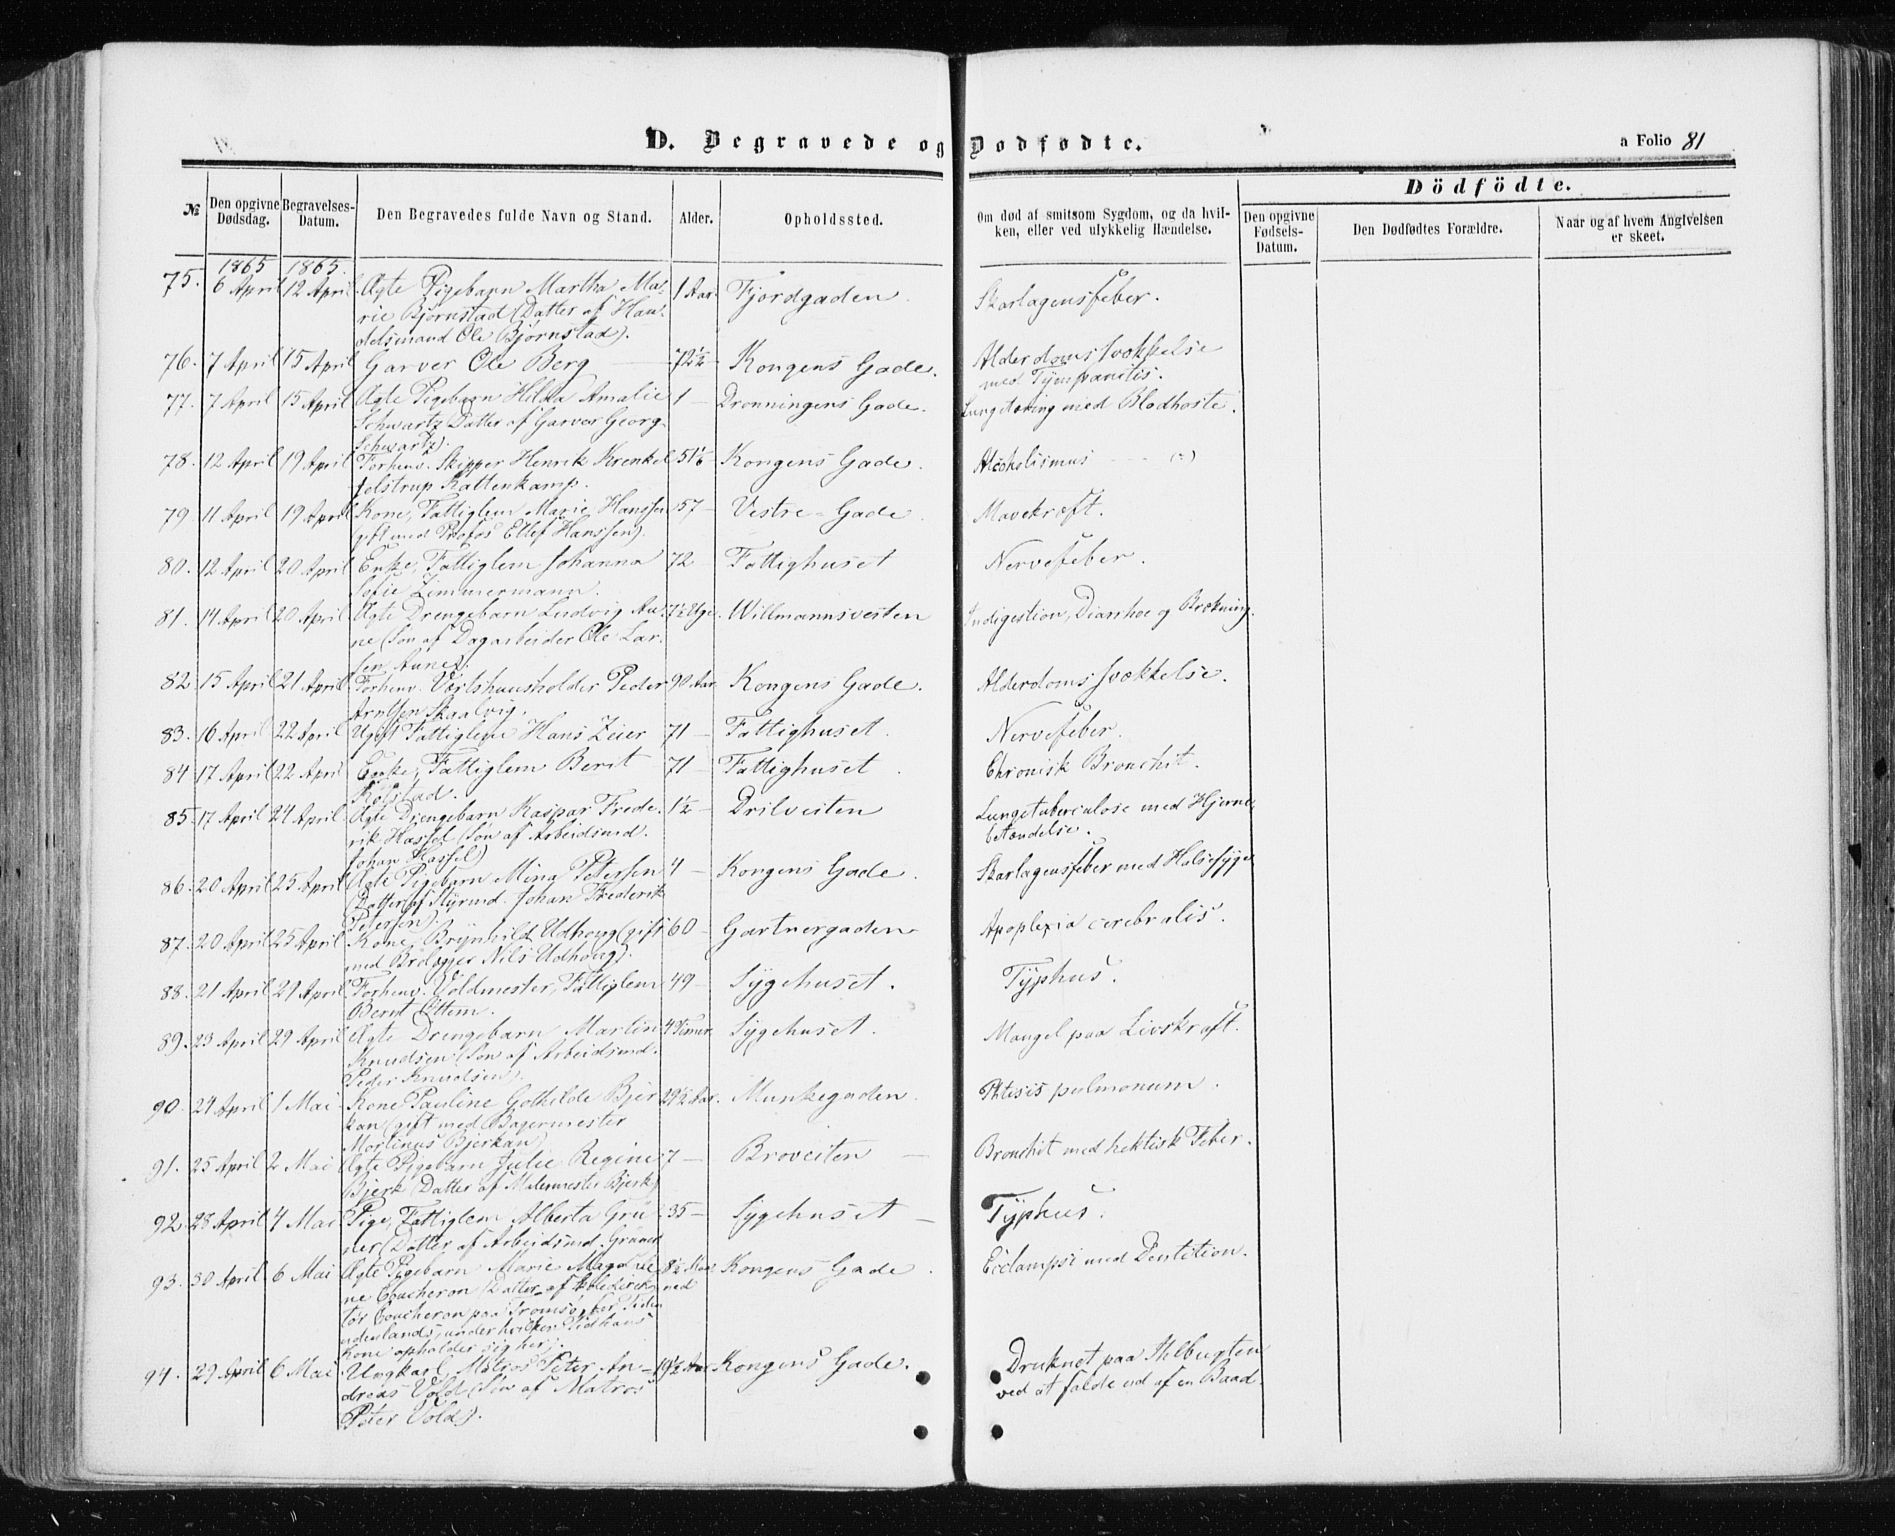 D. Begravede og Dødfødte.
a Folio 81
№
Den opgivne Dødsdag.
Begravelses-Datum.
Den Begravedes fulde Navn og Stand.
Alder.
Opholdssted.
Om død af smitsom Sygdom, og da hvil-
ken, eller ved ulykkelig Hændelse.
Dödfödte.
Den opgivne Fødsels-Datum.
Den Dødfødtes Forældre.
Naar og af hvem Angivelsen er skeet.
1865 1865.
75. 6 April 12 April Ægte Pigebarn Martha Ma- 1 Aar. Fjordgaden. Skarlagensfeber.
rie Bjørnstad (Datter af Han-
delsmand Ole Bjørnstad).
76. 7 April 15 April Garver Ole Berg 72½ Kongens Gade. Alderdomssvækkelse
med Tympanitis.
77. 7 April 15 April Ægte Pigebarn Hilda Amalie 1 — Dronningens Gade. Lungetæring med Blodhoste.
Schwartz Datter af Garver Georg
Schwartz).
78. 12 April 19 April Forhenv. Skipper Henrik Krenkel 51 Kongens Gade. Alcoholismus
Jelstrup Kattenkamp.
79 11 April 19 April Kone, Fattiglem Marie Hanssen 57 — Vestre-Gade. Mavekræft.
gift med Profos Ellef Hanssen).
80. 12 April 20 April Enke, Fattiglem Johanna 72 Fattighuset Nervefeber.
Sofie Zimmermann.
81. 14 April 20 April Ægte Drengebarn Ludvig Au- 7½ Uge. Willmannsveiten Indigestion, Diarrhoe og Brækning.
ne (Søn af Dagarbeider Ole Lar-
sen Aune).
82. 15 April 21 April Forhenv. Værtshuusholder Peder 90 Aar Kongens Gade. Alderdomssvækkelse.
Arntsen Skaalvig.
83. 16 April 22 April Ugift Fattiglem Hans Zeier 71 — Fattighuset. Nervefeber.
84 17 April 22 April Enke, Fattiglem Berit 71 — Fattighuset. Chronisk Bronchit.
Rolstad.
85. 17 April 24 April Ægte Drengebarn Kaspar Frede- 1½ — Drilveiten Lungetuberculose med Hjerne-
rik Hassel (Søn af Arbeidsmd. betændelse.
Johan Hassel)
86. 20 April 25 April Ægte Pigebarn Mina Petersen 4 — Kongens Gade. Skarlagensfeber med Halssyge
(Datter af Styrmd. Johan Frederik
Petersen)
87. 20 April 25 April Kone Brynhild Udhoug (gift 60 — Gartnergaden Apoplexia cerebralis.
med Brolægger Nils Udhoug).
88. 21 April 29 April Forhenv. Voldmester, Fattiglem 49 — Sygehuset. Typhus.
Bernt Ottem.
89. 23 April 29 April Ægte Drengebarn Martin 4 Timer. Sygehuset. Mangel paa Livskraft.
Knudsen (Søn af Arbeidsmd.
Peder Knudsen).
90. 24 April 1 Mai Kone Pauline Gothilde Bjer- 29½ Aar. Munkegaden. Phtisis pulmonum.
kan (gift med Bagermester
Martinus Bjerkan)
91. 25 April 2 Mai Ægte Pigebarn Julie Regine 7 — Broveiten — Bronchit med hektisk Feber.
Bjerk (Datter af Malermester Bjerk)
92. 28 April 4 Mai Pige, Fattiglem Alberta Grü- 35 — Sygehuset — Typhus.
ner (Datter af Arbeidsmd. Grüner
93. 30 April 6 Mai Ægte Pigebarn Marie Magdale- 8½ Maa- Kongens Gade. Ecclampsi med Dentition.
ne Coucheron (Datter af Skoledirek- ned
tør Coucheron paa Tromsø, for Tiden
udenlands, under hvilken Tid hans
Kone opholder sig her).
94. 29 April 6 Mai Ungkarl, Matros Peter An- 19½ Aar Kongens Gade. Druknet paa Ihlbugten
dreas Vold (Søn af Matros ved at falde ud af en Baad.
Peter Vold).